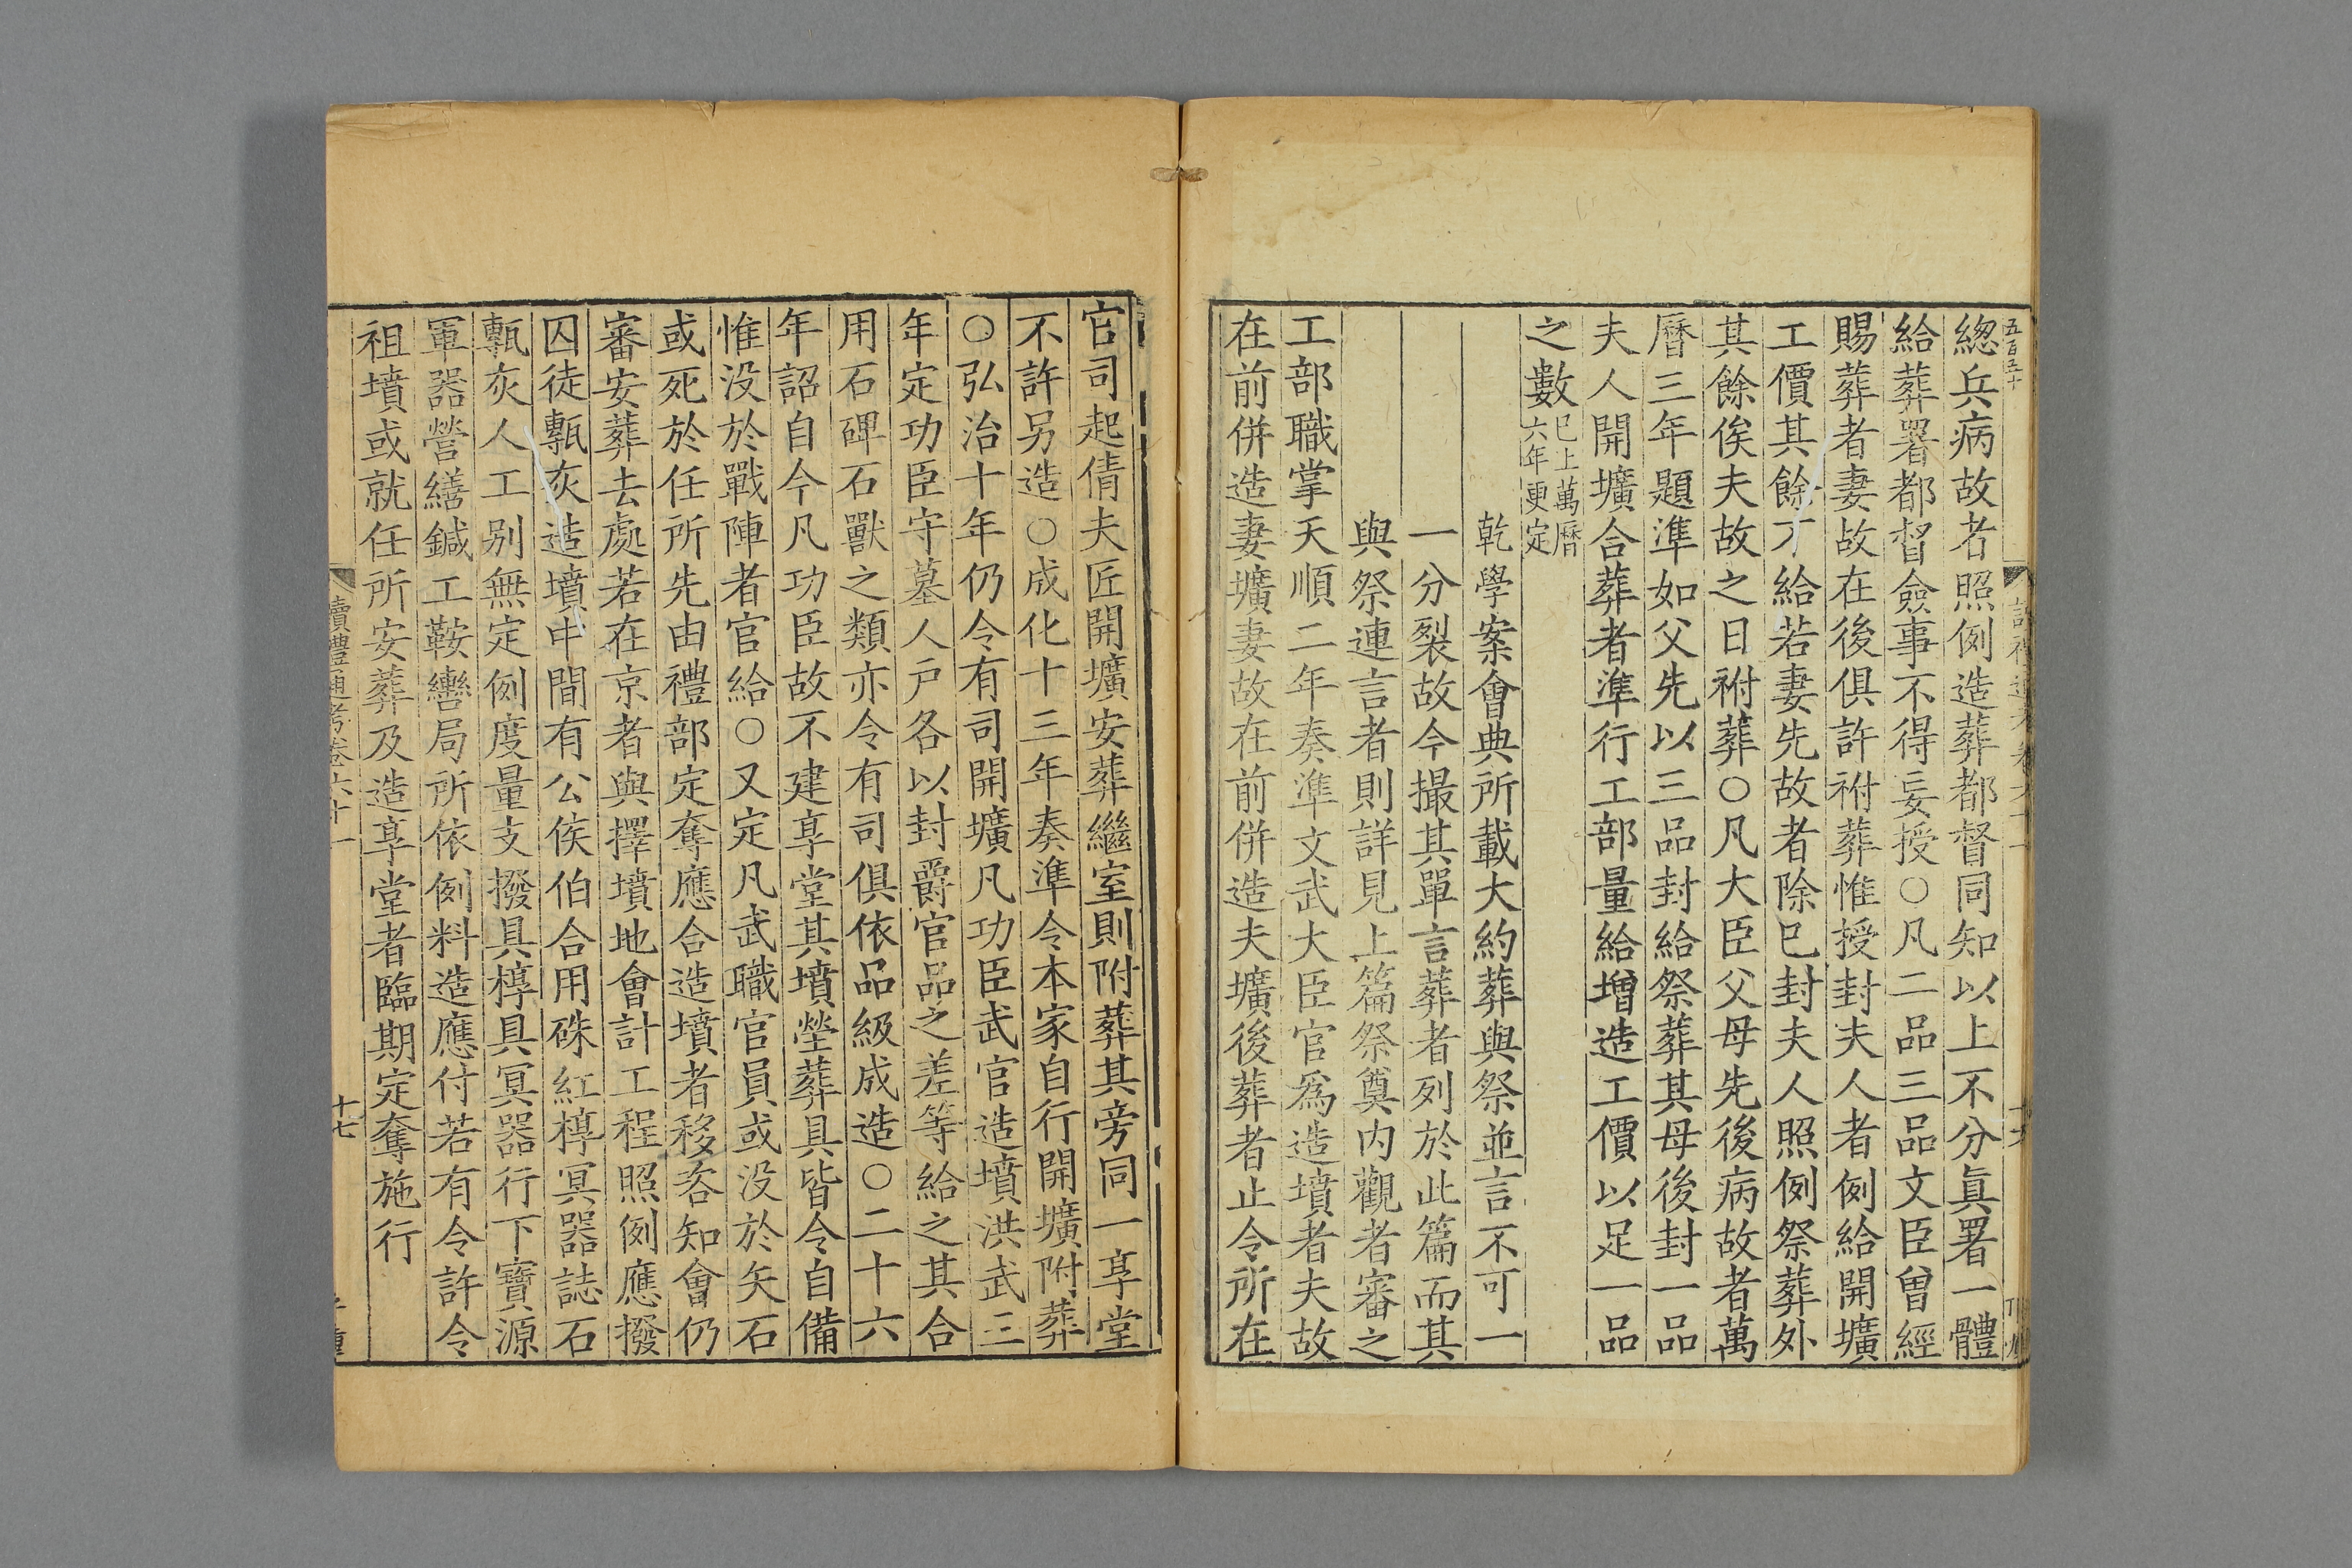 五百五十
總兵病故者照例造葬都督同知以上不分眞署一體
給葬署都督僉事不得妄授○凡二品三品文臣曾經
賜葬者妻故在後俱許祔葬惟授封夫人者例給開壙
工價其餘不給若妻先故者除已封夫人照例祭葬外
其餘俟夫故之日祔葬○凡大臣父母先後病故者萬
曆三年題準如父先以三品封給祭葬其母後封一品
夫人開壙合葬者準行工部量給增造工價以足一品
之數已上萬曆
六年更定
乾學案會典所載大約葬與祭並言不可一
一分裂故今撮其單言葬者列於此篇而其
與祭連言者則詳見上篇祭奠内觀者審之
工部職掌天順二年奏準文武大臣官爲造墳者夫故
在前併造妻壙妻故在前併造夫壙後葬者止令所在
官司起倩夫匠開壙安葬繼室則附葬其旁同一享堂
不許另造○成化十三年奏準令本家自行開壙附葬
○弘治十年仍令有司開壙凡功臣武官造墳洪武三
年定功臣守墓人戸各以封爵官品之差等給之其合
用石碑石獸之類亦令有司俱依品級成造○二十六
年詔自今凡功臣故不建享堂其墳塋葬具皆令自備
惟没於戰陣者官給○又定凡武職官員或没於矢石
或死於任所先由禮部定奪應合造墳者移咨知會仍
審安葬去處若在京者與擇墳地會計工程照例應撥
囚徒甎灰造墳中間有公侯伯合用硃紅槨冥器誌石
甎灰人工别無定例度量支撥具槨具冥器行下寶源
軍器營繕鍼工鞍轡局所依例料造應付若有令許令
祖墳或就任所安葬及造享堂者臨期定奪施行
讀禮通考卷六十一
十七